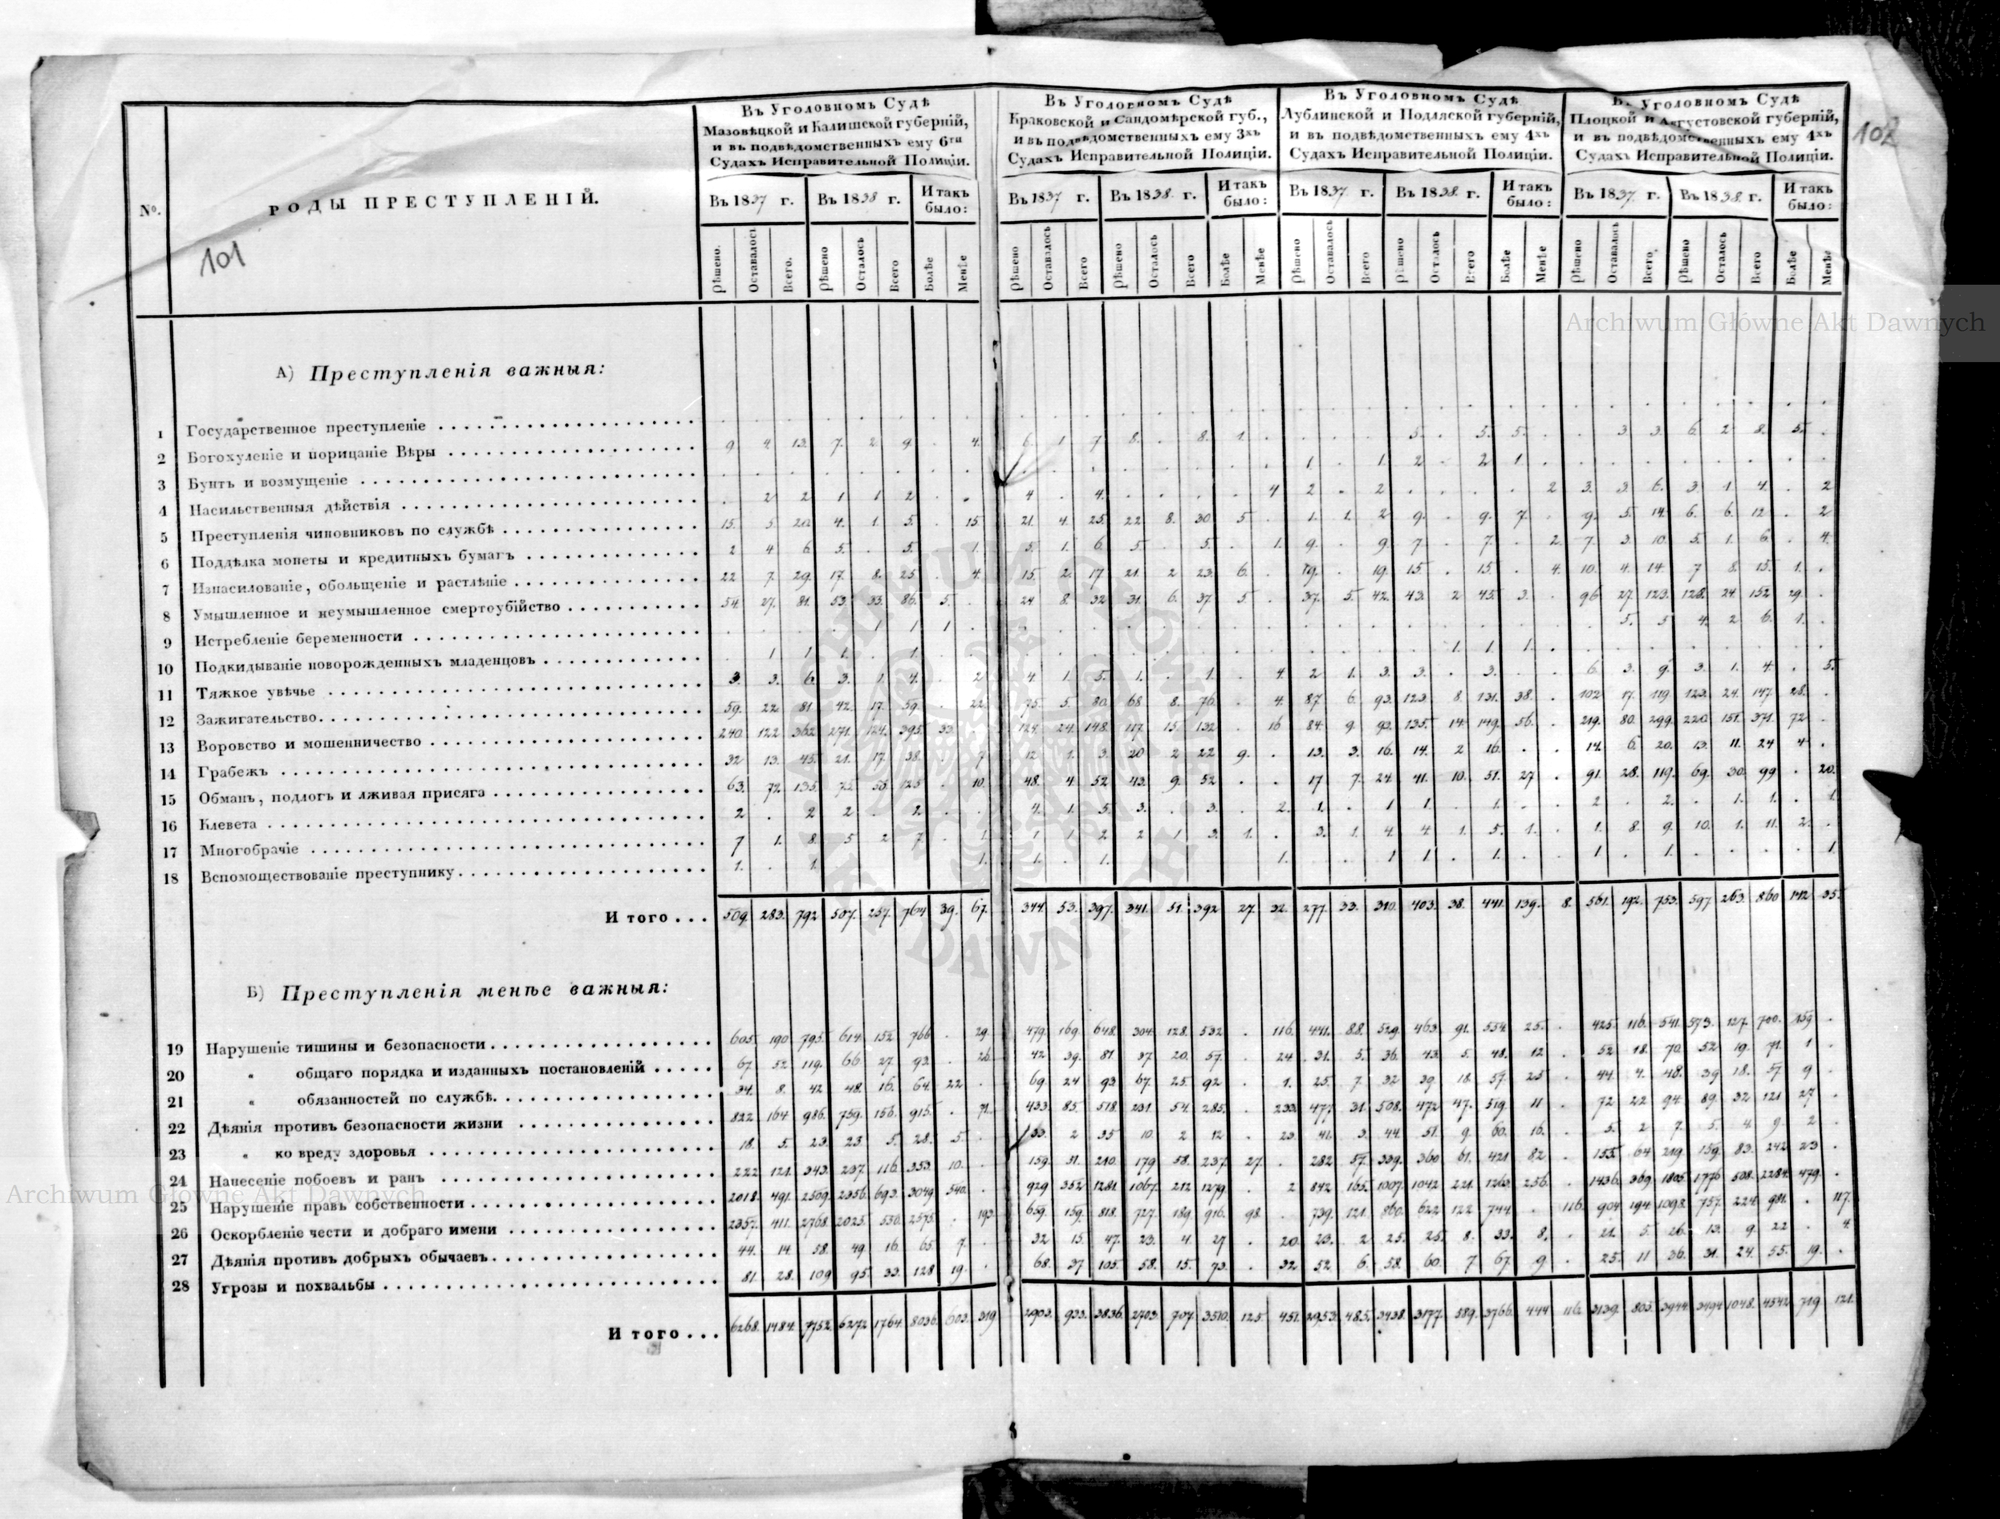 101
102
Въ Уголовномъ Судѣ
Мазовѣцкой и Калишской губерній,
и въ подвѣдомственныхъ ему 6ти
Судахъ Исправительной Полиціи.
Въ Уголовномъ Судѣ
Краковской и Сандомѣрской губ.,
и въ подвѣдомственныхъ ему 3хъ
Судахъ Исправительной Полиціи.
Въ Уголовномъ Судѣ
Лублинской и Подляской губерній,
и въ подвѣдомственныхъ ему 4хъ
Судахъ Исправительной Полиціи.
Въ Уголовномъ Судѣ
Плоцкой и Августовской губерній,
и въ подвѣдомственныхъ ему 4хъ
Судахъ Исправительной Полиціи.
№. РОДЫ ПРЕСТУПЛЕНІЙ.
Въ 1837 г. Въ 1838 г. И такъ было:
Въ 1837 г. Въ 1838 г. И такъ было:
Въ 1837 г. Въ 1838 г. И такъ было:
Въ 1837 г. Въ 1838 г. И такъ было:
Рѣшено. Оставалось Всего. Рѣшено Осталось Всего Болѣе Менѣе
Рѣшено Оставалось Всего Рѣшено Осталось Всего Болѣе Менѣе
Рѣшено Оставалось Всего Рѣшено Осталось Всего Болѣе Менѣе
Рѣшено Оставалось Всего Рѣшено Осталось Всего Болѣе Менѣе
Archiwum Główne Akt Dawnych
А) Преступленія важныя:
1 Государственное преступленіе
2 Богохуленіе и порицаніе Вѣры 9. 4. 13. 7. 2. 9. 4. 6. 1. 7. 8. 8. 1. 5. 5. 5. 3. 3. 6. 2. 8. 5.
3 Бунтъ и возмущеніе 1. 1. 2. 2. 1.
4 Насильственныя дѣйствія 2. 2. 1. 1. 2. 4. 4. 4 2. 2. 2. 3. 3. 6. 3. 1. 4. 2
5 Преступленія чиновниковъ по службѣ 15. 5. 20. 4. 1. 5. 15. 21. 4. 25. 22. 8. 30. 5. 1. 1. 2. 9. 9. 7. 9. 5. 14. 6. 6. 12. 2
6 Поддѣлка монеты и кредитныхъ бумагъ 2. 4. 6. 5. 5. 1. 5. 1. 6. 5. 5. 1. 9. 9. 7. 7. 2. 7. 3. 10. 5. 1. 6. 4.
7 Изнасилованіе, обольщеніе и растлѣніе 22. 7. 29. 17. 8. 25. 4. 15. 2. 17 21. 2. 23. 6. 19. 19. 15. 15. 4. 10. 4. 14. 7 8. 15. 1.
8 Умышленное и неумышленное смертоубійство 54. 27. 81. 53. 33. 86. 5. 24 8. 32 31. 6. 37. 5. 37. 5. 42. 43. 2 45. 3. 96 27. 123. 128. 24 152 29.
9 Истребленіе беременности 1 1. 1 5. 5 4. 2 6. 1.
10 Подкидываніе новорожденныхъ младенцовъ 1. 1. 1. 1. 1. 1. 1.
11 Тяжкое увѣчье 3. 3. 6. 3. 1. 4. 2. 4. 1. 5. 1. 1. 4. 2. 1. 3. 3. 3. 6. 3. 9. 3. 1. 4. 5.
12 Зажигательство. 59. 22. 81. 42. 17. 59. 22. 75. 5. 80. 68. 8. 76. 4. 87. 6. 93. 123. 8. 131. 38. 102. 17. 119. 123. 24. 147. 28.
13 Воровство и мошенничество 240. 122. 362. 271. 124. 395. 33. 124. 24. 148. 117. 15. 132. 16 84. 9. 93. 135. 14. 149. 56. 219. 80. 299. 220. 151. 371. 72
14 Грабежъ 32 13. 45. 21. 17. 38. 7 20 2 22 9. 13. 3. 16. 14. 2 16. 14. 6. 20. 13. 11. 24 4
15 Обманъ, подлогъ и лживая присяга 63. 72. 135. 10. 48. 4. 52 43. 9. 52. 17 7. 24 41. 10. 51. 27 91. 28. 119. 69. 30. 99 20.
16 Клевета 2. 2 2. 2. 4. 1. 5. 3. 3. 2. 1. 1 1. 1. 2. 2. 1. 1. 1.
17 Многобрачіе 7 1. 8. 5. 2 7. 1. 1 1. 2. 2 1. 3. 1. 3. 1. 4. 4 1. 5. 1. 1. 8. 9. 10. 1. 11. 2.
18 Вспомоществованіе преступнику 1. 1. 1. 1. 1. 1. 1 1 1. 1 1. 1.
Итого... 509. 283. 792 507. 257. 764 39. 67. 344. 53. 397. 341. 51. 392. 27. 32. 277. 33. 310. 403. 38. 441. 139. 8. 561. 192. 753. 597. 263. 860 142 35.
Б) Преступленія менѣе важныя:
19 Нарушеніе тишины и безопасности 605. 190. 795. 614. 152. 766. 29. 479. 169. 648. 304. 128. 532. 116. 441. 88. 529. 463. 91. 554. 25. 425. 116. 541. 573. 127. 700. 159.
20 „ общаго порядка и изданныхъ постановленій 67. 52 119. 66. 27. 93. 26. 42. 39. 81 37 20. 57. 24 31. 5. 36. 43. 5. 48. 12 52 18. 70. 52 19. 71. 1
21 „ обязанностей по службѣ. 34. 8. 42 48. 16. 64. 22. 69. 24 93 67. 25. 92 1. 25. 7 32 39. 18. 57. 25 44. 4. 48. 39 18. 57 9
22 Дѣянія противъ безопасности жизни 822 164 986. 759. 156. 915. 71. 433. 85. 518. 231. 54. 285. 233. 477. 31. 508. 472 47. 519. 11 72 22 94. 89. 32 121 27
23 „ ко вреду здоровья 18. 5. 23. 23 5. 28. 5. 33. 2 35 10 2 12 23. 41. 3. 44. 51. 9. 60. 16. 5. 2 7. 5. 4 9. 2
24 Нанесеніе побоевъ и ранъ 222 121. 343. 237. 116. 353. 10. 159. 31. 210. 179 58. 237. 27. 282 57. 339. 360 61. 421 82 155. 64 219. 159. 83. 242 23
25 Нарушеніе правъ собственности 2018. 491. 2509. 2356. 693. 3049. 540. 929 352 1281. 1067. 212 1279. 2 842 165. 1007. 1042 221. 1263. 256. 1436. 369. 1805. 1776 508. 2284. 479.
26 Оскорбленіе чести и добраго имени 2357. 411. 2768. 2025. 550. 2575. 193. 659. 159. 818. 727. 189. 916. 98. 739. 121. 860. 622 122 744. 116. 904 194 1098. 757. 224. 981. 117.
27 Дѣянія противъ добрыхъ обычаевъ. 44. 14. 58. 49. 16. 65. 7. 32 15. 47. 23. 4 27 20. 23. 2 25. 25. 8. 33. 8. 21. 5. 26. 13. 9. 22 4
28 Угрозы и похвальбы 81. 28. 109 95. 33. 128. 19. 68. 37 105. 58. 15. 73. 32. 52. 6. 58. 60. 7 67. 9 25. 11 36. 31. 24. 55. 19.
Итого... 6268. 1484. 7752. 6272. 1764. 8036. 603. 319. 2903. 933. 3836. 2703. 707 3510. 125. 451. 2953. 485. 3438. 3177. 589. 3766. 444 116. 3139. 805. 3944. 3494. 1048. 4542 719. 121.
Archiwum Główne Akt Dawnych